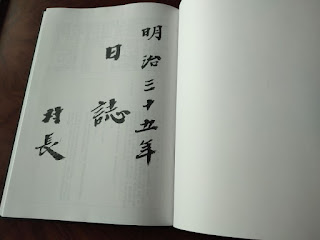 明治三十五年
日誌
村長